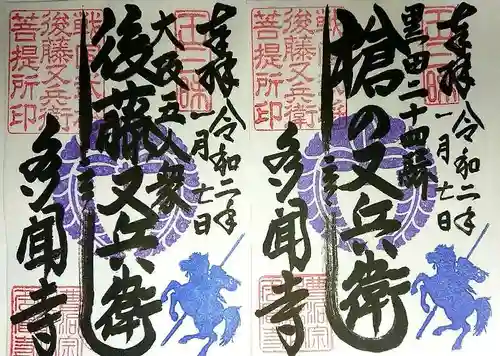 奉拝
令和二年
一月七日
大坂五人衆
後藤又兵衛
多聞寺
後藤又兵衛
菩提所印
奉拝
令和二年
一月七日
黒田二十四騎
槍の又兵衛
多聞寺
後藤又兵衛
菩提所印